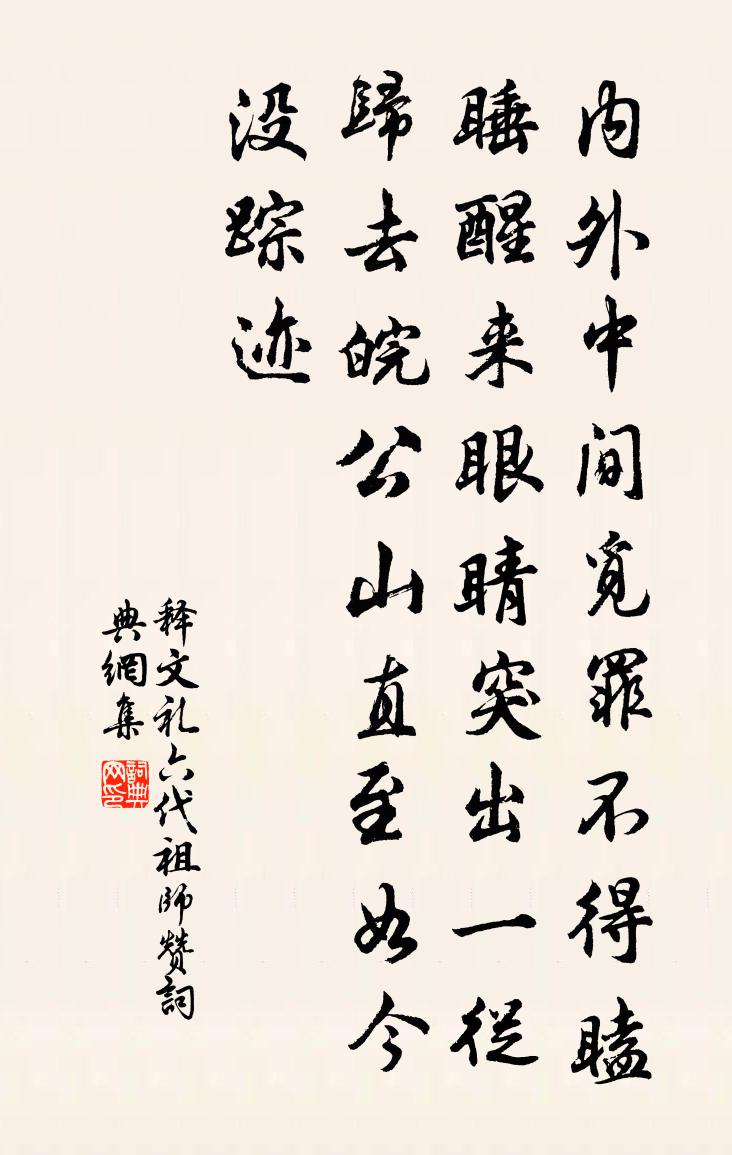 内外中间觅罪不得瞌
睡醒来眼睛突出一従
歸去皖公山直至如今
没踪迹
释文礼六代祖师赞詞
典網集
詞典网印